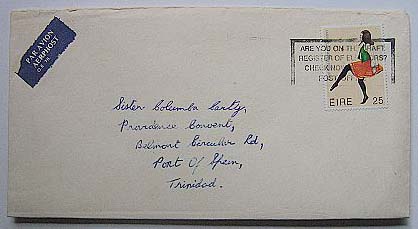 PAR AVION
AERPHOST
ARE YOU ON THE DRAFT
REGISTER OF ELECTORS?
CHECK NOW
POST
ÉIRE 25
Sister Columba Carty,
Providence Convent,
Belmont Circular Rd,
Port Of Spain,
Trinidad.